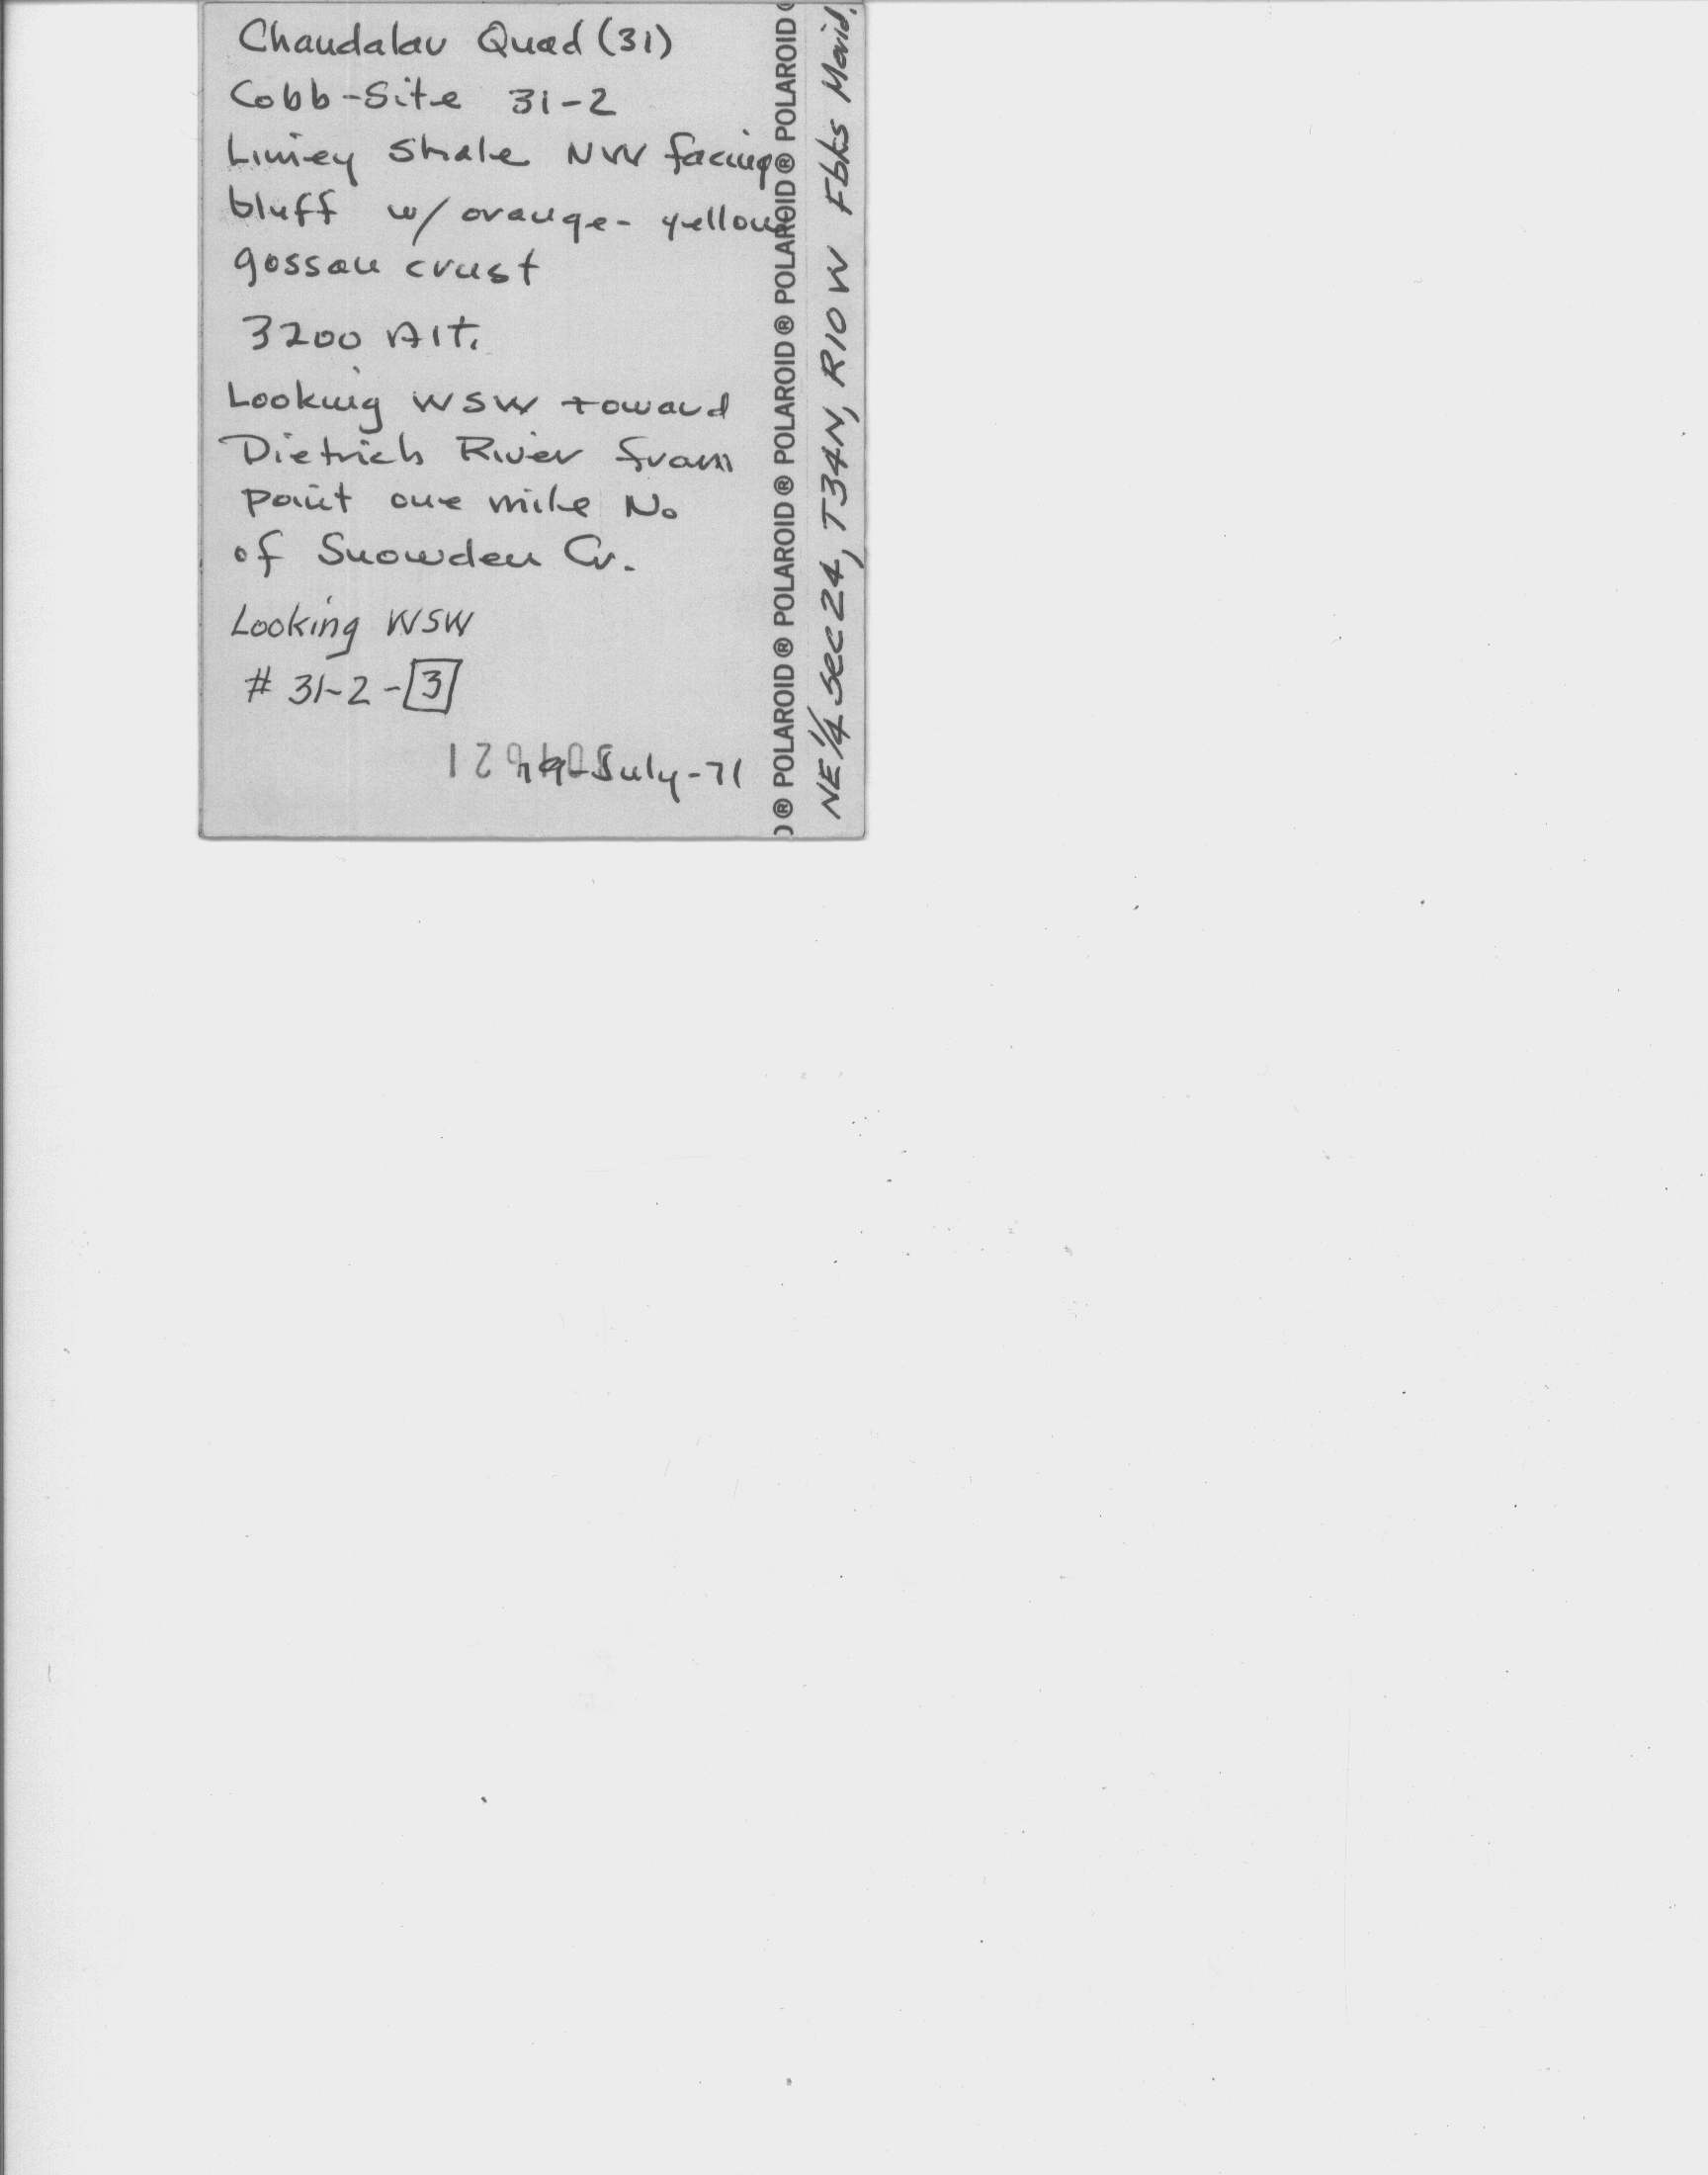 Chandalar Quad (31)
Cobb-Site 31-2
Limey Shale NW facing
bluff w/ orange-yellow
gossan crust
3200 Alt.
Looking WSW toward
Dietrich River from
point one mile No
of Snowden Cr.
Looking WSW
# 31-2-3
July-71
® POLAROID ® POLAROID ® POLAROID ® POLAROID ® POLAROID ® POLAROID
NE 1/4 Sec 24, T34N, R10W Fbks Merid.